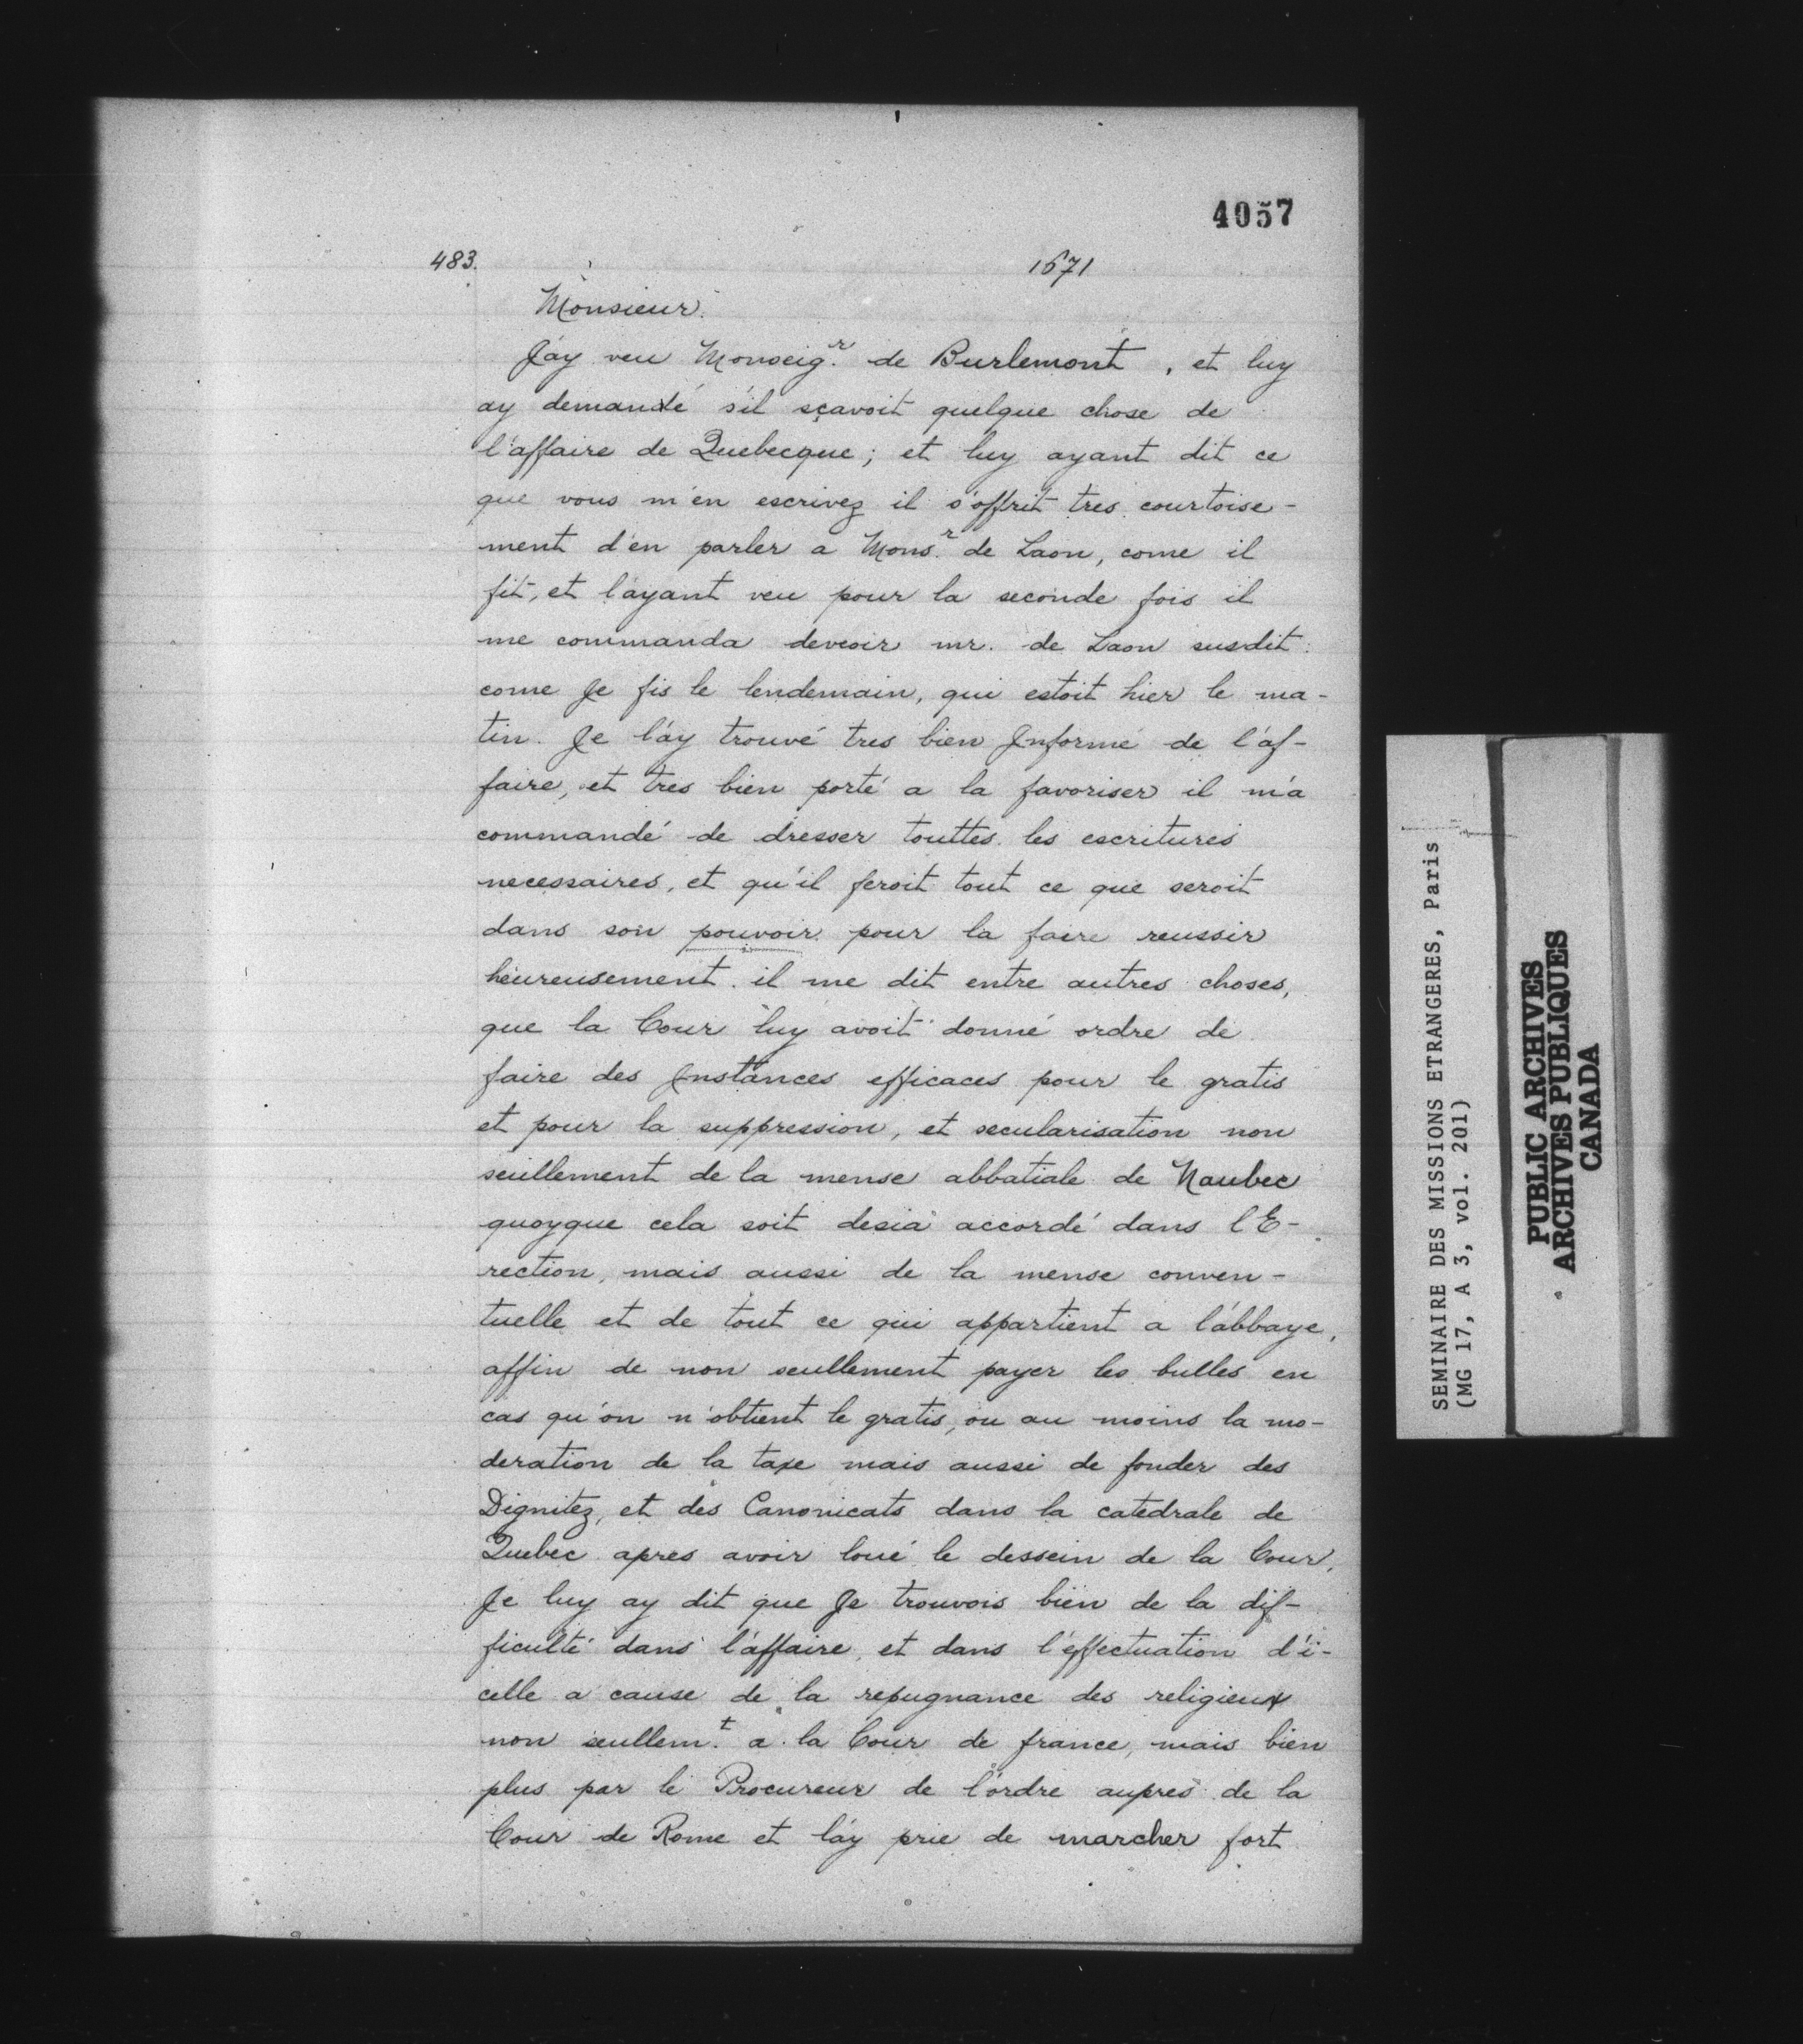 4057
483. 1671
Monsieur.
J'ay veu Monseig.r de Burlemont, et luy
ay demandé s'il sçavoit quelque chose de
l'affaire de Quebecque; et luy ayant dit ce
que vous m'en escrivez il s'offrit tres courtoise-
ment d'en parler a Mons.r de Laon, come il
fit, et l'ayant veu pour la seconde fois il
me commanda devoir mr. de Laon susdit:
come Je fis le lendemain, qui estoit hier le ma-
tin. Je l'ay trouvé tres bien Informé de l'af-
faire, et tres bien porté a la favoriser il m'a
commandé de dresser touttes les escritures
necessaires, et qu'il feroit tout ce que seroit
dans son pouvoir pour la faire reussir
heureusement. il me dit entre autres choses,
que la Cour luy avoit donné ordre de
faire des Instances efficaces pour le gratis
et pour la suppression, et secularisation non
seullement de la mense abbatiale de Maubec
quoyque cela soit desia accordé dans l'E-
rection, mais aussi de la mense conven-
tuelle et de tout ce qui appartient a l'abbaye,
affin de non seullement payer les bulles en
cas qu'on n'obtient le gratis, ou au moins la mo-
deration de la taxe mais aussi de fonder des
Dignitez, et des Canonicats dans la catedrale de
Quebec apres avoir loué le dessein de la Cour,
Je luy ay dit que Je trouvois bien de la dif-
ficulté dans l'affaire, et dans l'effectuation d'i-
celle a cause de la repugnance des religieux
non seullem.t a la Cour de france, mais bien
plus par le Procureur de l'ordre aupres de la
Cour de Rome et l'ay prie de marcher fort
SEMINAIRE DES MISSIONS ETRANGERES, Paris
(MG 17, A 3, vol. 201)
PUBLIC ARCHIVES
ARCHIVES PUBLIQUES
CANADA